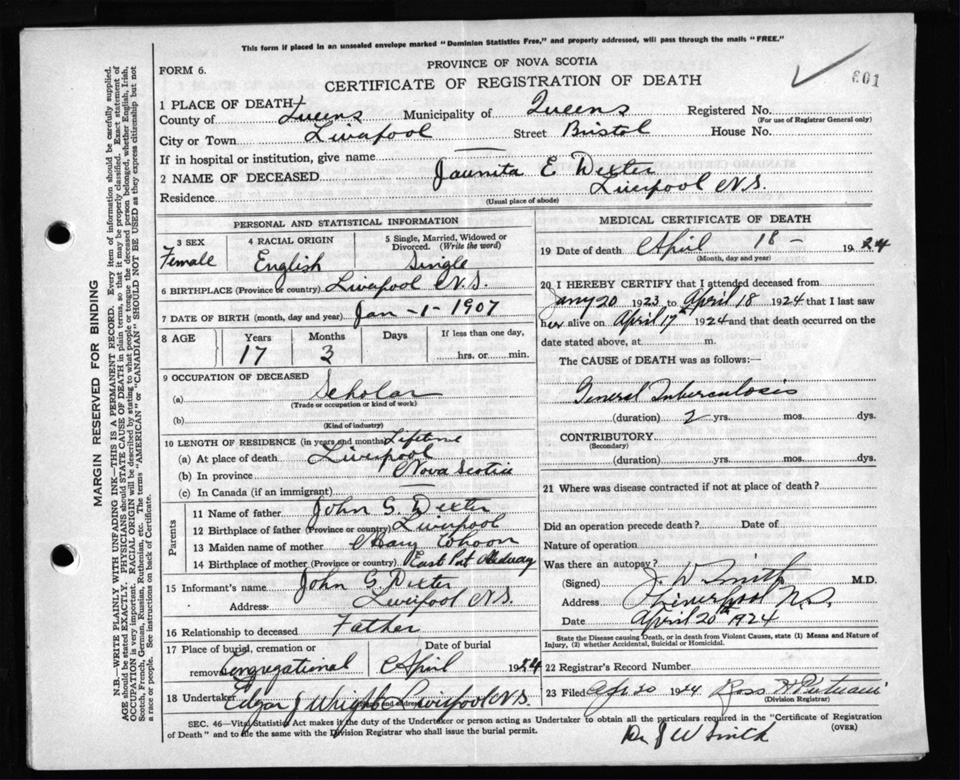 This form if placed in an unsealed envelope marked "Dominion Statistics Free," and properly addressed, will pass through the mails "FREE."
PROVINCE OF NOVA SCOTIA
FORM 6.
CERTIFICATE OF REGISTRATION OF DEATH
601
1 PLACE OF DEATH
County of Queens Municipality of Queens Registered No.
(For use of Registrar General only)
City or Town Liverpool Street Bristol House No.
If in hospital or institution, give name
2 NAME OF DECEASED Jaunita E Dexter
Residence Liverpool N.S.
(Usual place of abode)
PERSONAL AND STATISTICAL INFORMATION
3 SEX Female
4 RACIAL ORIGIN English
5 Single, Married, Widowed or Divorced. (Write the word) Single
6 BIRTHPLACE (Province or country) Liverpool N.S.
7 DATE OF BIRTH (month, day and year) Jan -1- 1907
8 AGE Years 17 Months 3 Days If less than one day, hrs. or min.
9 OCCUPATION OF DECEASED
(a) Scholar
(Trade or occupation or kind of work)
(b)
(Kind of industry)
10 LENGTH OF RESIDENCE (in years and months) Lifetime
(a) At place of death Liverpool
(b) In province Nova Scotia
(c) In Canada (if an immigrant)
Parents
11 Name of father John G. Dexter
12 Birthplace of father (Province or country) Liverpool
13 Maiden name of mother Mary
14 Birthplace of mother (Province or country) East Port Medway
15 Informant's name John G Dexter
Address Liverpool N.S.
16 Relationship to deceased Father
17 Place of burial, cremation or removal Congregational
Date of burial April 1924
18 Undertaker Edgar J Wright Liverpool N.S.
MEDICAL CERTIFICATE OF DEATH
19 Date of death April 18 - 1924
(Month, day and year)
20 I HEREBY CERTIFY that I attended deceased from
Jany 20 1923 to April 18 1924 that I last saw
her alive on April 17th 1924 and that death occurred on the
date stated above, at m.
The CAUSE of DEATH was as follows:
General Tuberculosis
(duration) 2 yrs. mos. dys.
CONTRIBUTORY
(Secondary)
(duration) yrs. mos. dys.
21 Where was disease contracted if not at place of death?
Did an operation precede death? Date of
Nature of operation
Was there an autopsy?
(Signed) J. W Smith M.D.
Address Liverpool N.S.
Date April 20th 1924
State the Disease causing Death, or in death from Violent Causes, state (1) Means and Nature of
Injury, (2) whether Accidental, Suicidal or Homicidal.
22 Registrar's Record Number
23 Filed Apr 20 1924 Ross
(Division Registrar)
SEC. 46—Vital Statistics Act makes it the duty of the Undertaker or person acting as Undertaker to obtain all the particulars required in the "Certificate of Registration
of Death" and to file the same with the Division Registrar who shall issue the burial permit.
(OVER)
Dr J W Smith
MARGIN RESERVED FOR BINDING
N.B.—WRITE PLAINLY WITH UNFADING INK—THIS IS A PERMANENT RECORD. Every item of information should be carefully supplied.
AGE should be stated EXACTLY. PHYSICIANS should STATE CAUSE OF DEATH in plain terms, so that it may be properly classified. Exact statement of
OCCUPATION is very important. RACIAL ORIGIN will be described by stating to what people or tongue, the deceased person belonged, whether English, Irish,
Scotch, French, German, Russian, Ruthenian, etc. The terms "AMERICAN" or "CANADIAN" SHOULD NOT BE USED as they express citizenship but not
a race or people. See instructions on back of Certificate.